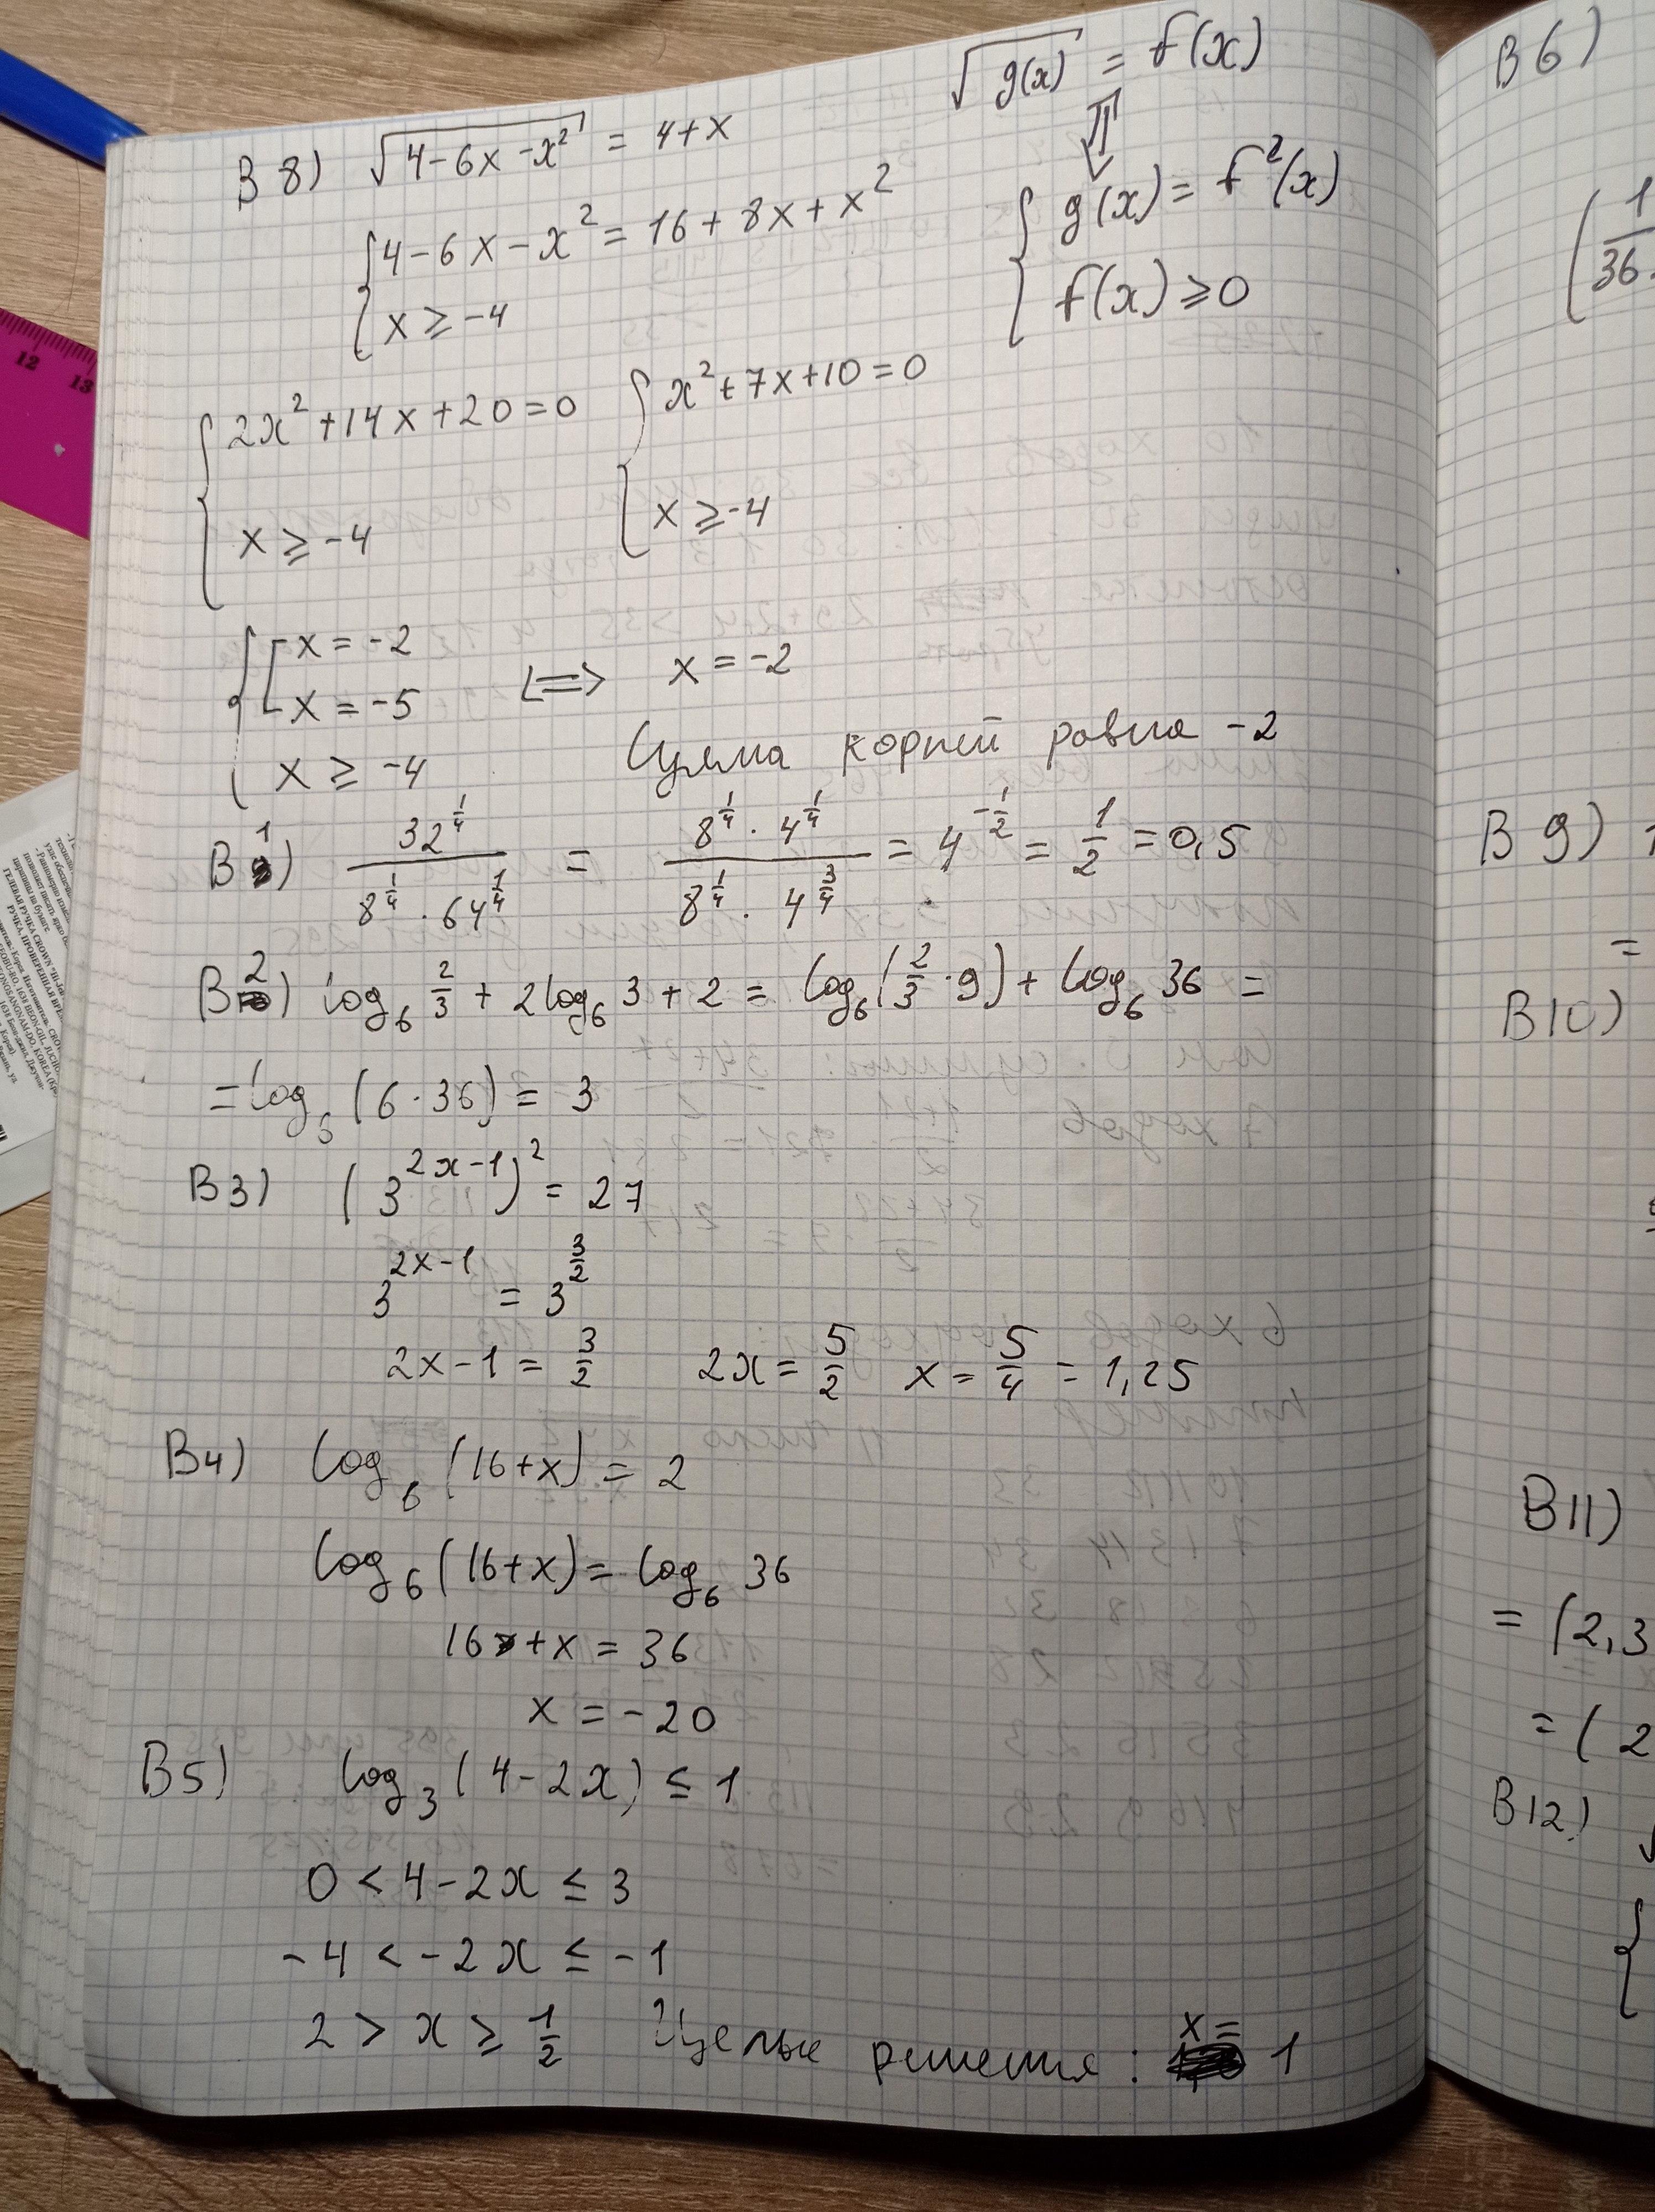 B8) √(4-6x-x²) = 4+x
√g(x) = f(x)
⇕
{ 4-6x-x² = 16+8x+x²
{ x ≥ -4
{ g(x) = f²(x)
{ f(x) ≥ 0
{ 2x²+14x+20=0
{ x ≥ -4
{ x²+7x+10=0
{ x ≥ -4
{ [ x = -2
[ x = -5
x ≥ -4
⟺ x = -2
Сумма корней равна -2
B1) 32^(1/4) / (8^(1/4) · 64^(1/4)) = (8^(1/4) · 4^(1/4)) / (8^(1/4) · 4^(3/4)) = 4^(-1/2) = 1/2 = 0,5
B2) log₆ 2/3 + 2log₆ 3 + 2 = log₆(2/3 · 9) + log₆ 36 =
= log₆ (6·36) = 3
B3) (3^(2x-1))² = 27
3^(2x-1) = 3^(3/2)
2x-1 = 3/2 2x = 5/2 x = 5/4 = 1,25
B4) log₆ (16+x) = 2
log₆ (16+x) = log₆ 36
16+x = 36
x = -20
B5) log₃ (4-2x) ≤ 1
0 < 4-2x ≤ 3
-4 < -2x ≤ -1
2 > x ≥ 1/2 Целые решения: x = 1
B6)
(1/36
B9)
=
B10)
B11)
= (2,3
= (2
B12)
12 13